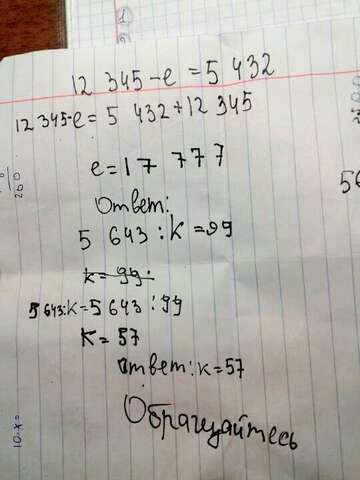 12 345-e = 5 432
12 345-e= 5 432+12 345
e=17 777
Ответ:
5 643:k=99
k=99:
5 643:k=5 643:99
k=57
ответ:k=57
Обращайтесь
260
10·x=